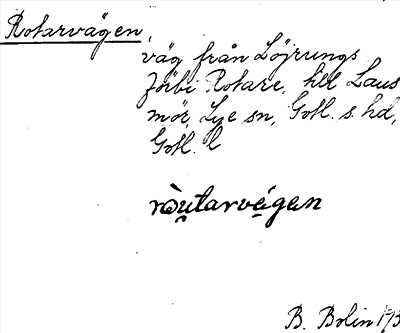 Rotarvägen,
väg från Löjrungs
förbi Rotare, till Laus
mör, Lye sn, Gotl. s. hd,
Gotl. l
ròu̯tarvégen
B. Bolin 193